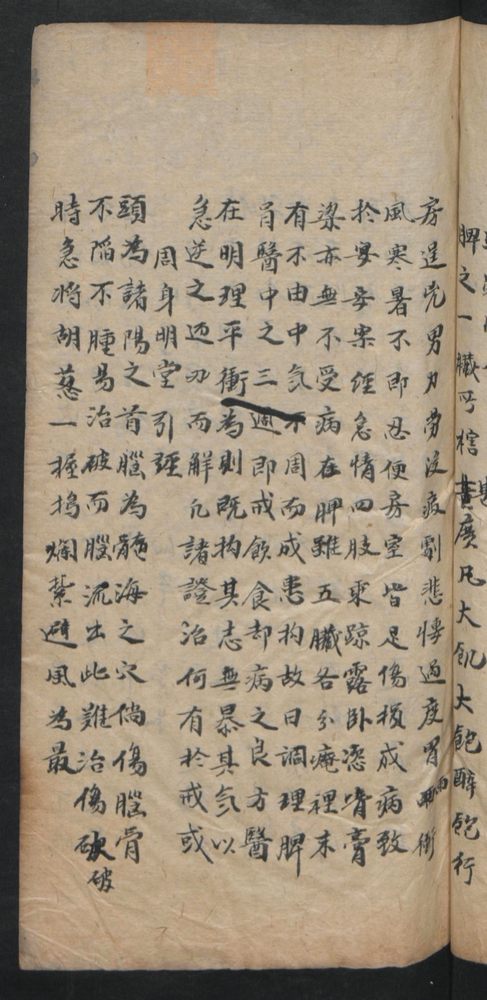 脾之一臟廣凡大飢大飽醉飽行
房逞男力勞没疲劇悲悽過度冒雨衝
風寒暑不即忍便房室皆足傷損成病致
於宴安案經急惰四肢乘踈露卧恣嗜膏
梁亦無不受病在脾雖五臟各分庵裡未
有不由中氣不周而成患拘故曰調理脾
胃醫中之三週即戒飲食却病之良方醫
在明理平衝為則既拘其志無暴其氣以
急逆之迎刃而解凢諸證治何有於戒或
周身明堂引經
頭為諸陽之首腦為髓海之穴倘傷腦骨
不陷不腫易治破而腦流出此難治傷破
時急將胡葱一握搗爛紮避風為最